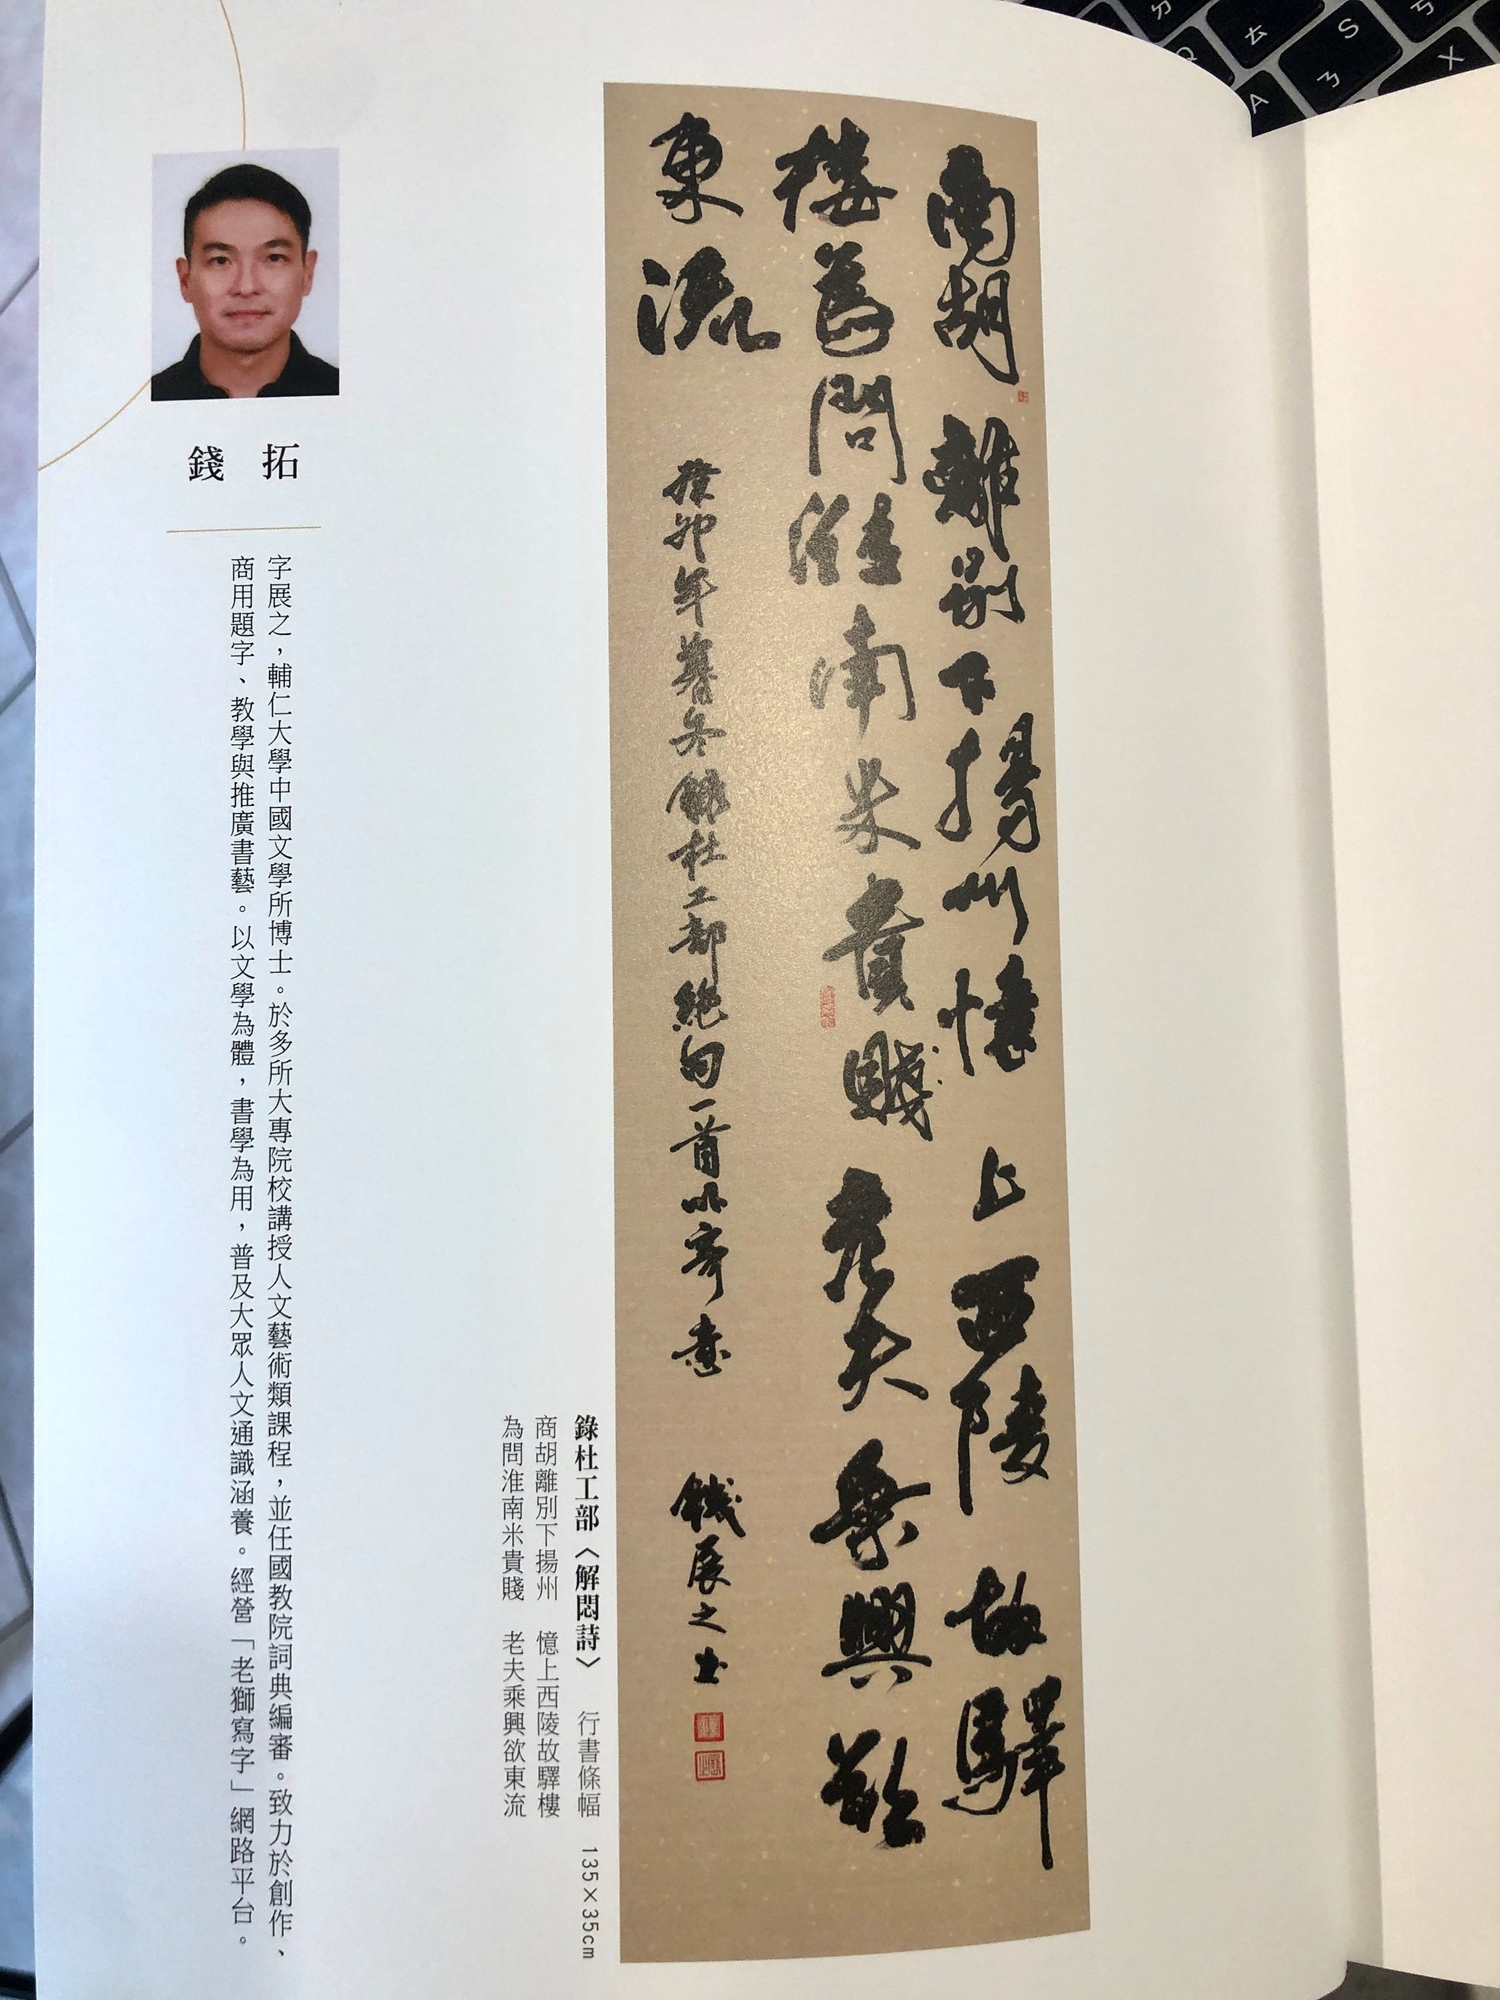 商胡離別下揚州憶上西陵故驛
樓為問淮南米貴賤老夫乘興欲
東流
癸卯年暮冬錄杜工部絕句一首以寄意 錢展之書
錄杜工部〈解悶詩〉 行書條幅 135×35cm
商胡離別下揚州 憶上西陵故驛樓
為問淮南米貴賤 老夫乘興欲東流
錢 拓
字展之,輔仁大學中國文學所博士。於多所大專院校講授人文藝術類課程,並任國教院詞典編審。致力於創作、
商用題字、教學與推廣書藝。以文學為體,書學為用,普及大眾人文通識涵養。經營「老獅寫字」網路平台。
ㄅ
Q
ㄊ
S
ㄋ
A
X